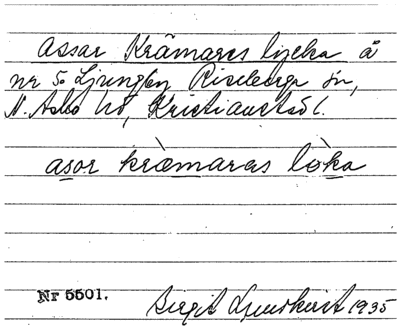 Assar Krämares lycka å
nr 5 Ljungby, Riseberga sn,
N. Åsbo hd, Kristianstad l.
asor kræmaras lỳka
Nr 5501.
Birgit Lundkvist 1935